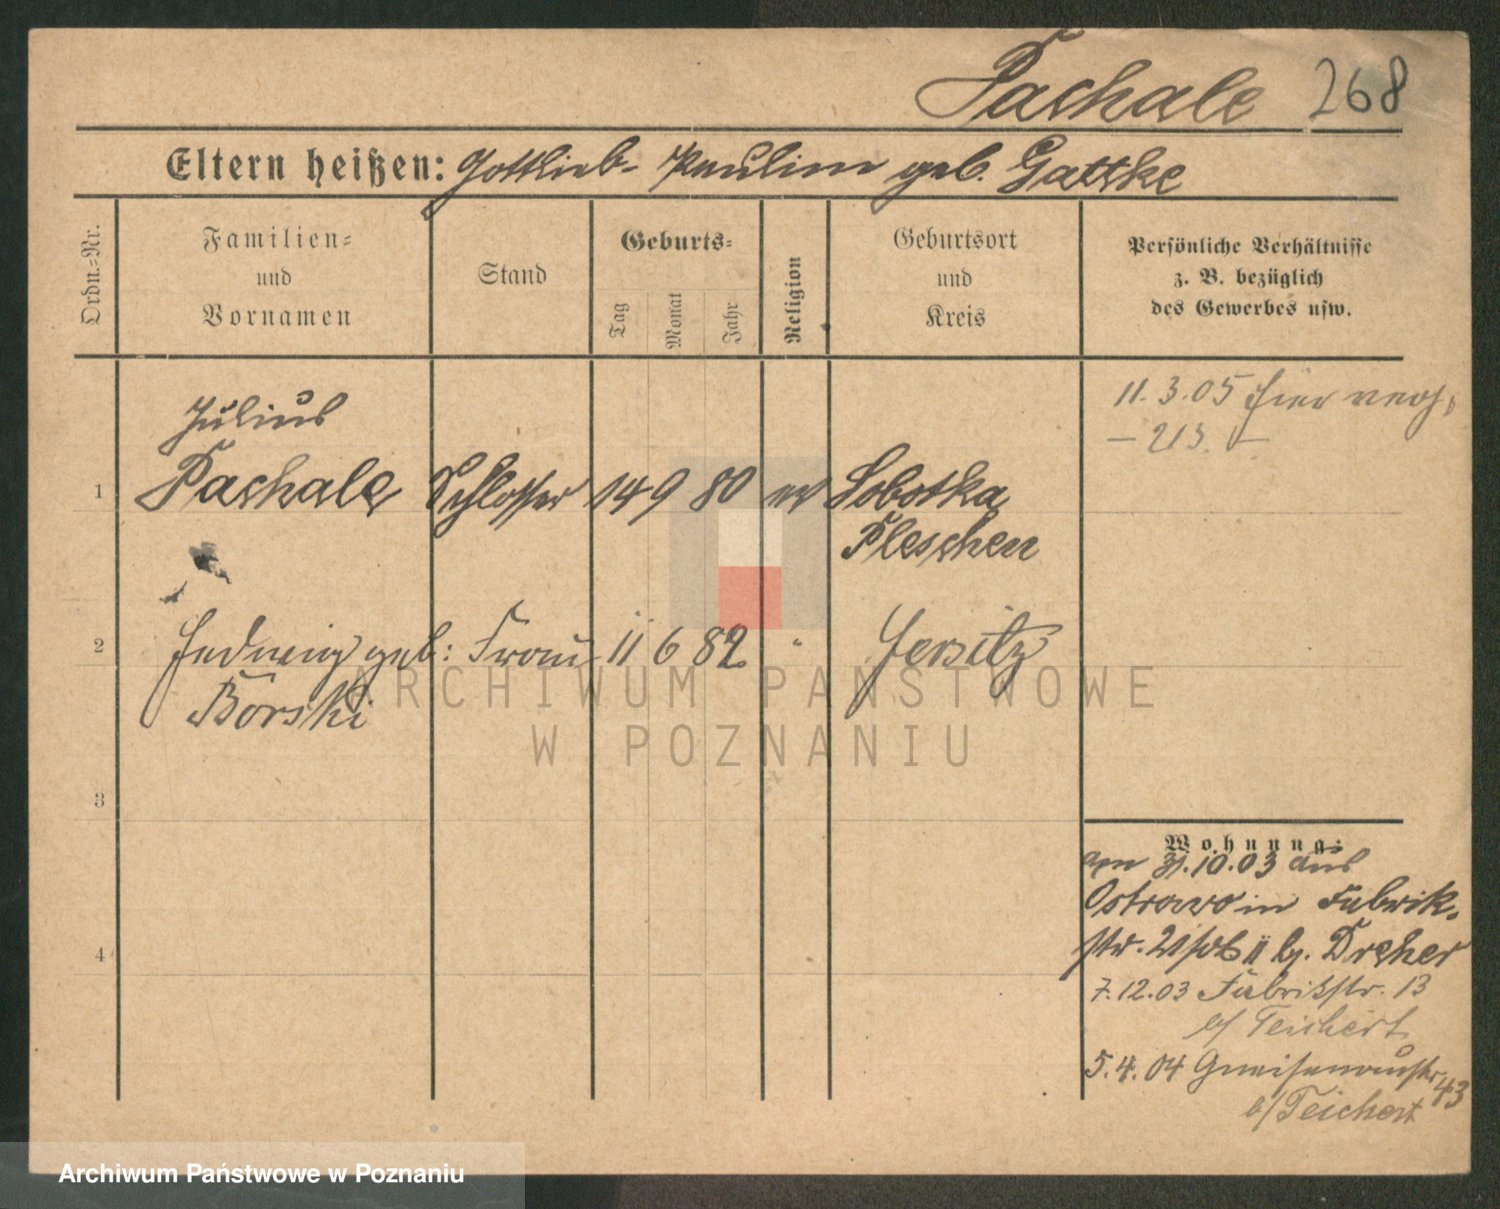 Paschale 268
Eltern heißen: Gottlieb - Pauline geb. Gattke
Ordn.-Nr.
Familien-
und
Vornamen
Stand
Geburts-
Tag
Monat
Jahr
Religion
Geburtsort
und
Kreis
Persönliche Verhältnisse
z. B. bezüglich
des Gewerbes usw.
11.3.05 hier
Julius
1 Paschale Schlosser 14 9 80 ev Sobotka
Pleschen
2 Hedwig geb: Frau 11 6 82 " Jersitz
Borski
3
4
Wohnung:
am 31.10.03 aus
Ostrowo in Fabrik-
str. 21 II b/. Dreher
7.12.03 Fabrikstr. 13
b/ Teichert
5.4.04 Gneisenaustr. 43
b/ Teichert
ARCHIWUM PAŃSTWOWE
W POZNANIU
Archiwum Państwowe w Poznaniu